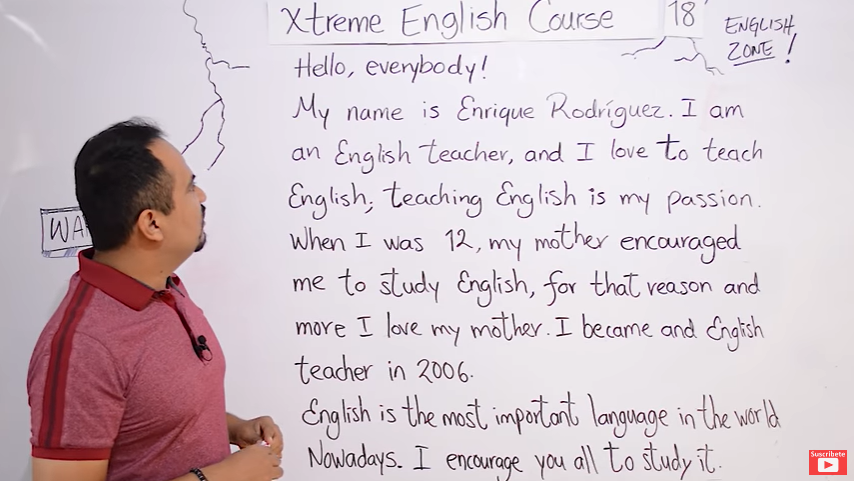 Xtreme English Course 18
ENGLISH
ZONE!
Hello, everybody!
My name is Enrique Rodríguez. I am
an English teacher, and I love to teach
English; teaching English is my passion.
When I was 12, my mother encouraged
me to study English, for that reason and
more I love my mother. I became and English
teacher in 2006.
English is the most important language in the world
Nowadays. I encourage you all to study it.
Suscríbete